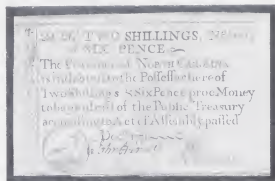 TWO SHILLINGS,
SIX PENCE
The Province of NORTH CAROLINA
is indebted to the Possessor hereof
Two Shillings & Six Pence proc Money
to be paid out of the Public Treasury
according to Act of Assembly passed
Dec